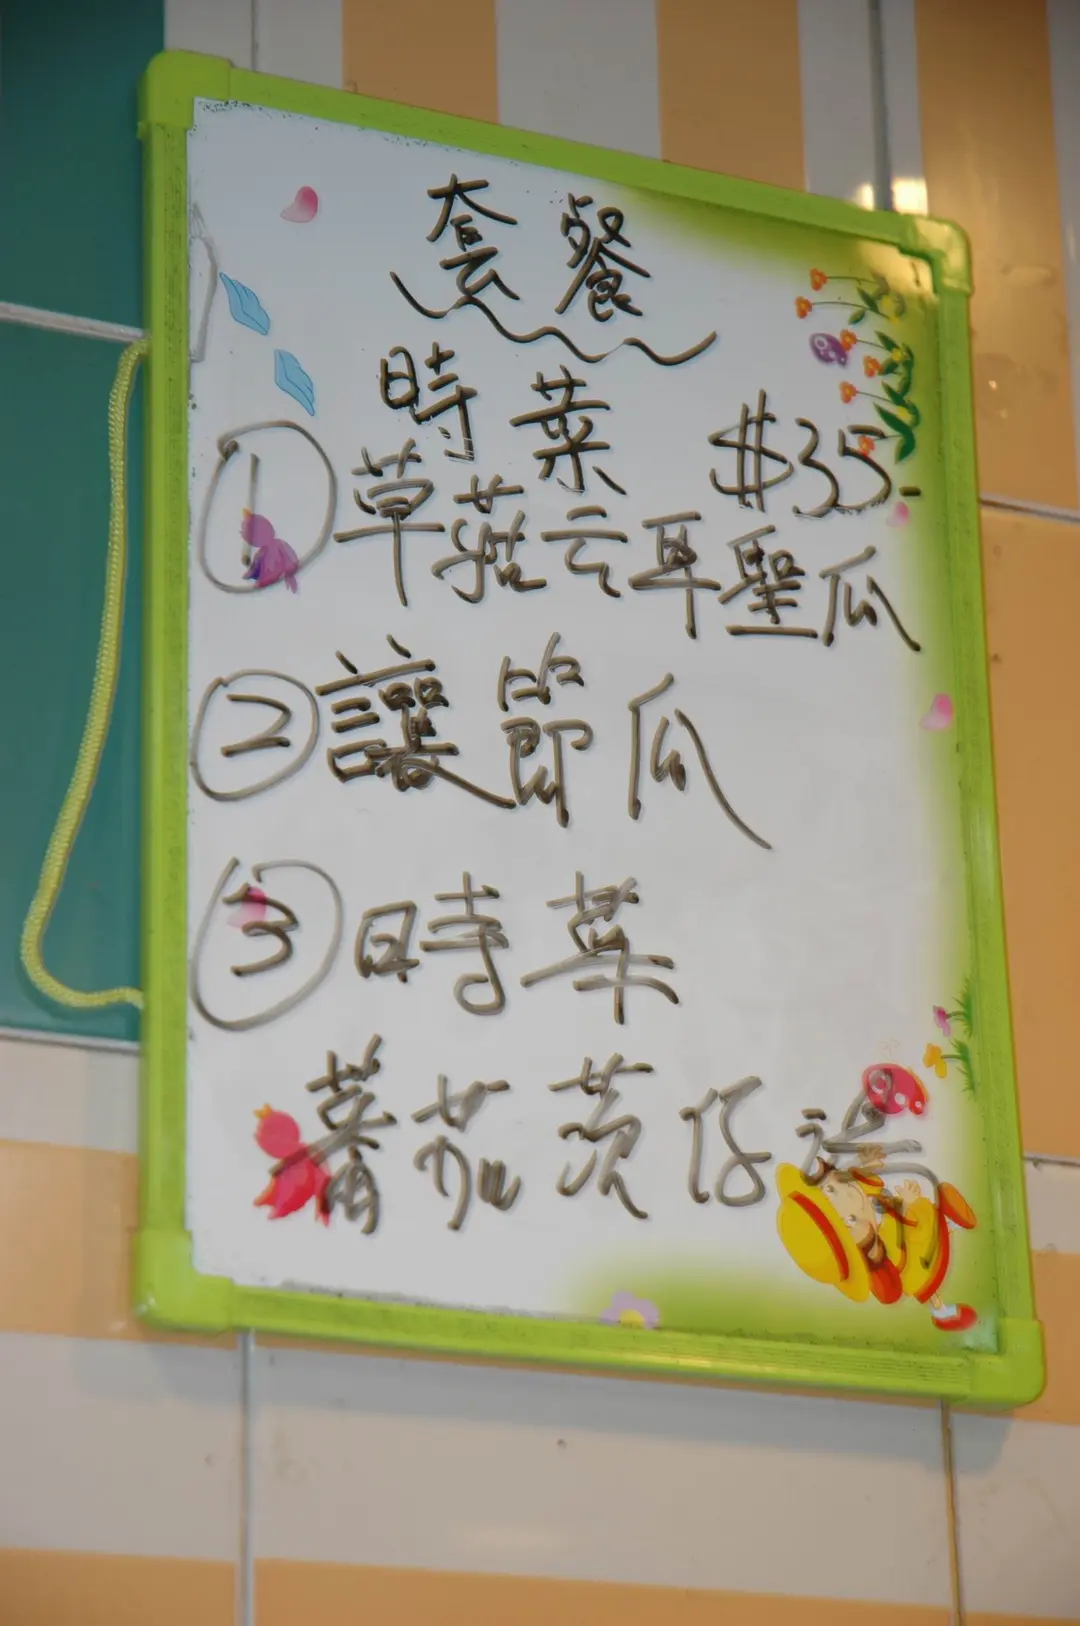 套餐
時菜 $35.-
① 草菇云耳聖瓜
② 讓節瓜
③ 時菜
蕃茄茨仔湯